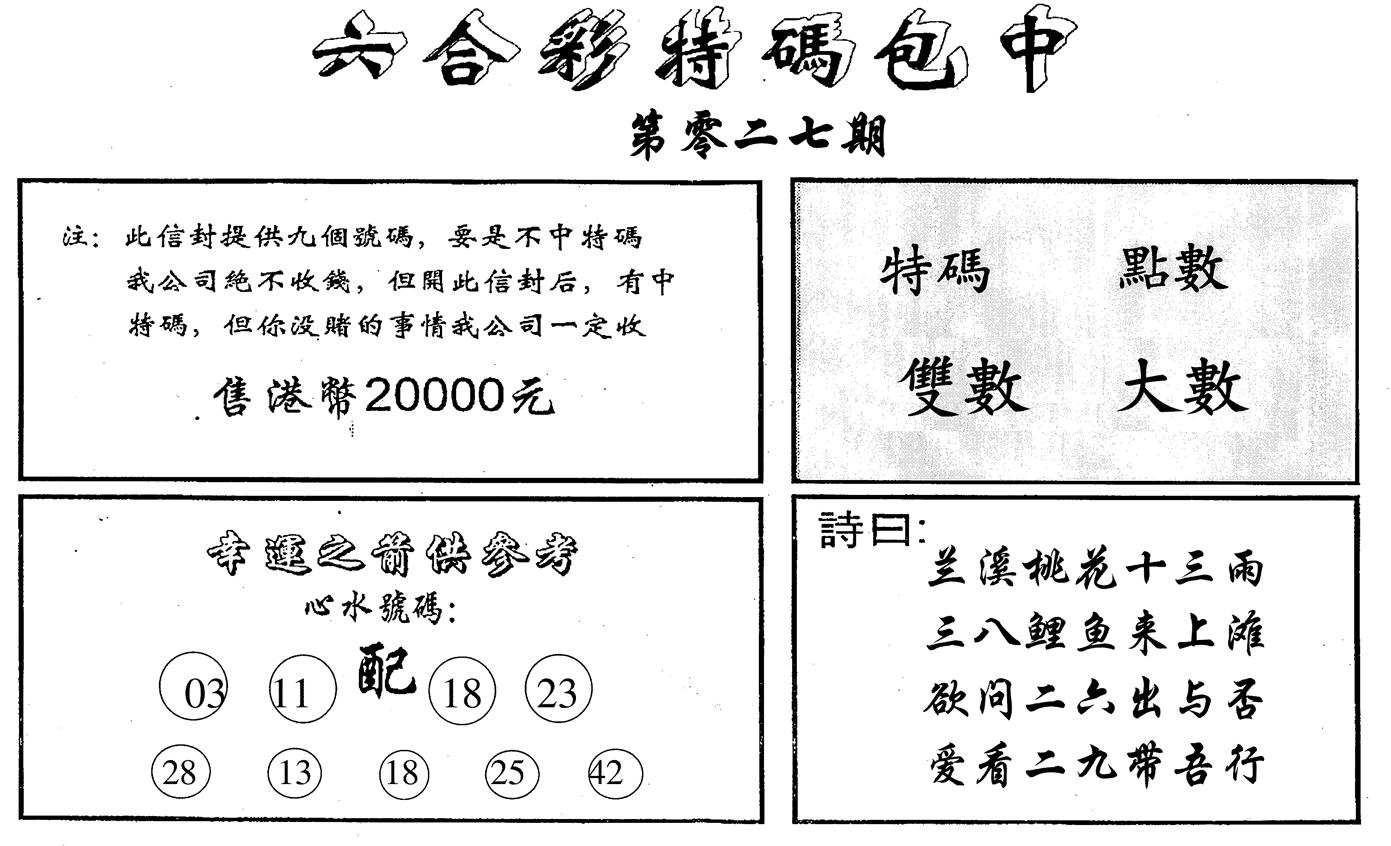 六合彩特碼包中
第零二七期
注：此信封提供九個號碼，要是不中特碼
我公司絕不收錢，但開此信封后，有中
特碼，但你没賭的事情我公司一定收
售港幣20000元
特碼 點數
雙數 大數
幸運之箭供參考
心水號碼：
03 11 配 18 23
28 13 18 25 42
詩曰：
兰溪桃花十三雨
三八鲤鱼来上滩
欲问二六出与否
爱看二九帶吾行